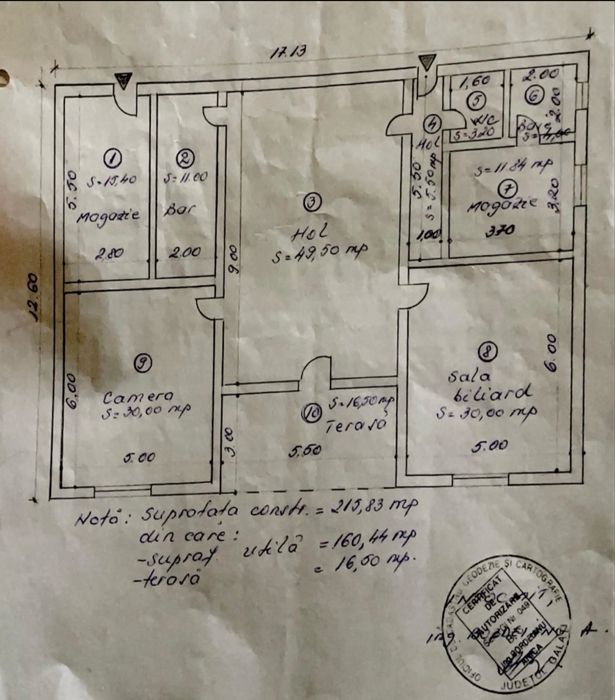 17.13
12.60
1
S=15,40
Magazie
5.50
2.80
2
S=11.00
Bar
2.00
3
Hol
S=49,50 mp
9.00
4
Hol
S=5.50 mp
5.50
1.00
1,60
5
WC
S=3.20
2.00
6
2.00
S=11.84 mp
7
Magazie
3.70
3.20
9
Camera
S=30,00 mp
6,00
5.00
10
S=16,50 mp
Terasă
3.00
5.50
8
Sala
biliard
S=30,00 mp
6.00
5.00
Notă: Suprafața constr. = 215,83 mp
din care:
-supraf. utilă = 160,44 mp
-terasă = 16,50 mp.
GEODEZIE ȘI CARTOGRAFIE
CERTIFICAT
DE
AUTORIZARE
JUDEȚUL GALAȚI